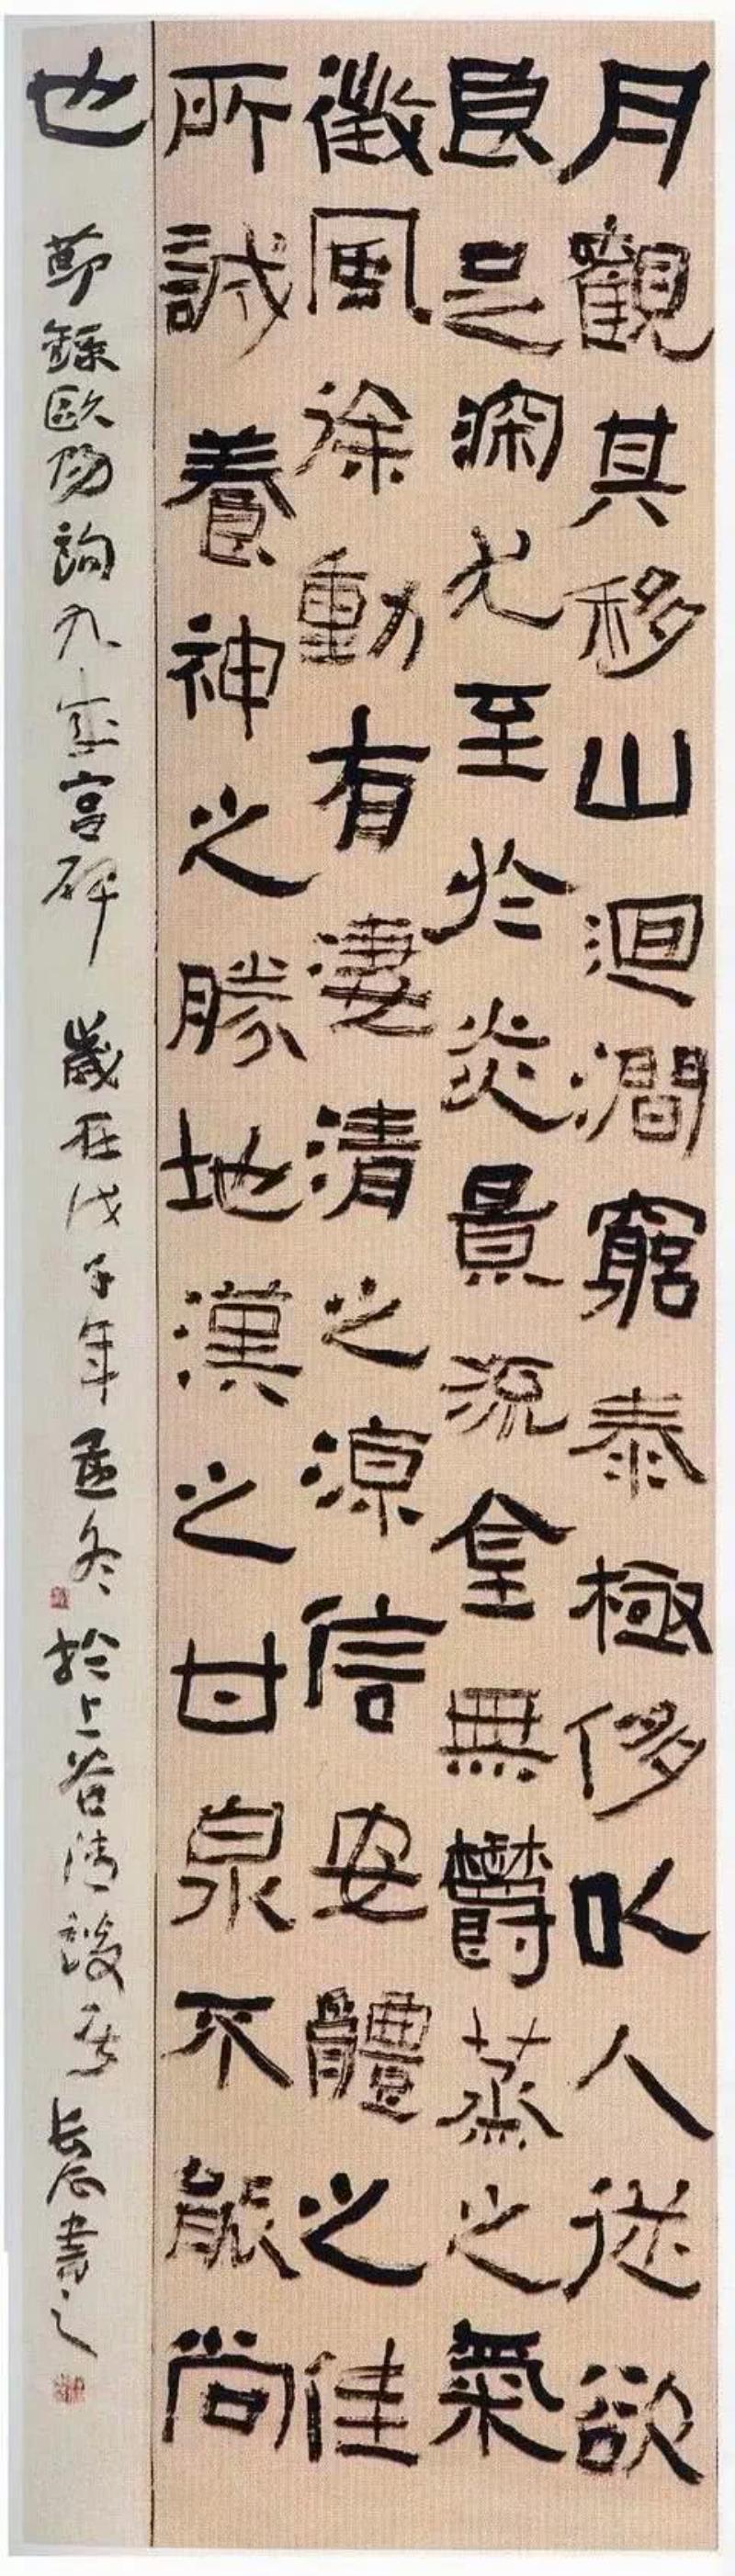 月觀其移山迴澗窮泰極侈以人從欲
良足深尤至於炎景流金無鬱蒸之氣
微風徐動有淒清之涼信安體之佳
所誠養神之勝地漢之甘泉不能尚
也
節錄歐陽詢九成宮碑 歲在戊子年孟冬於上谷清談齋長辰書之